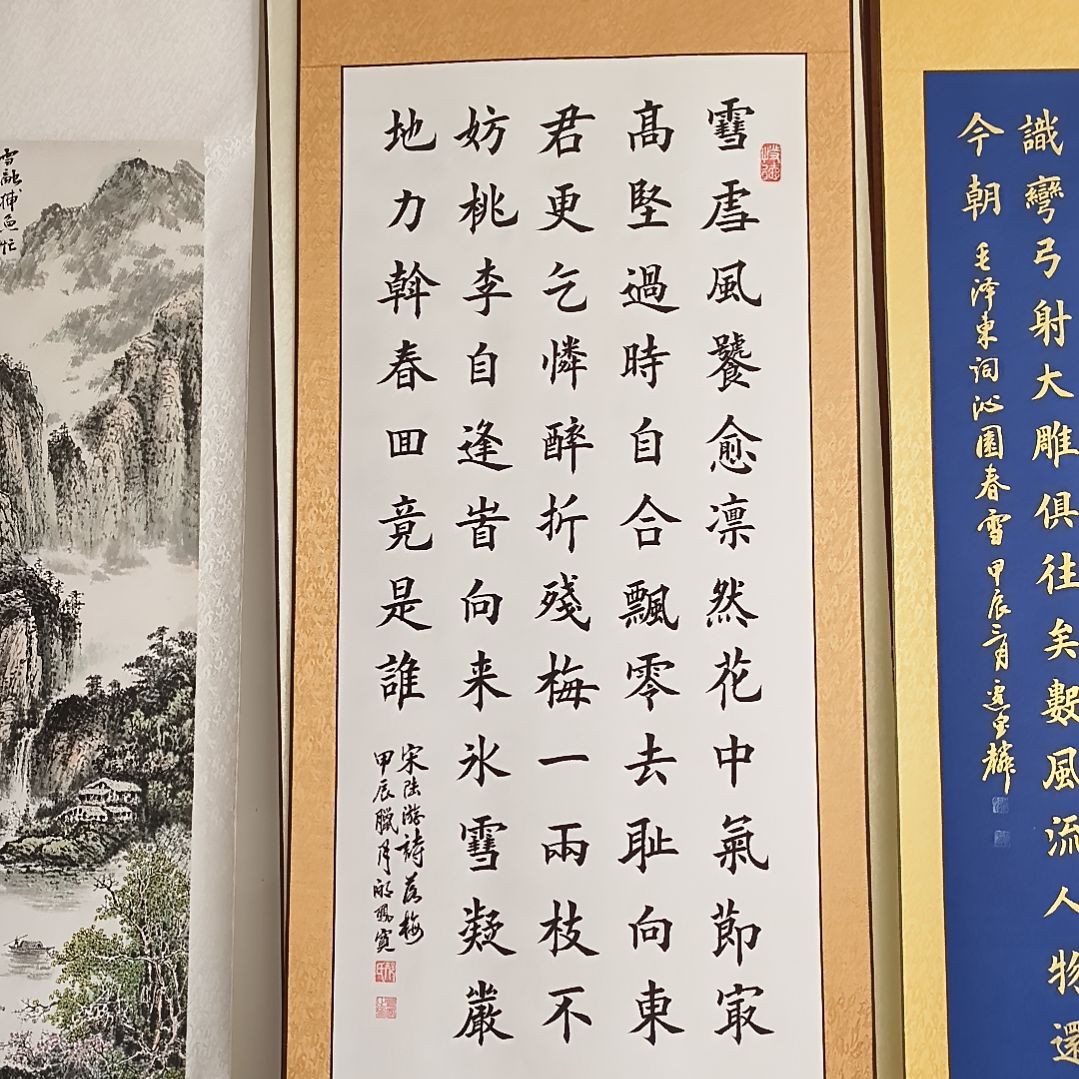 識彎弓射大雕俱往矣數風流人物還
今朝
毛泽東词沁園春雪甲辰三月
雪虐風饕愈凛然花中氣莭㝡
髙堅過時自合飄零去耻向東
君更乞憐醉折殘梅一兩枝不
妨桃李自逢旹向来氷雪凝嚴
地力斡春囬竟是誰
宋陆游詩落梅
甲辰臘月
雪融捕魚忙